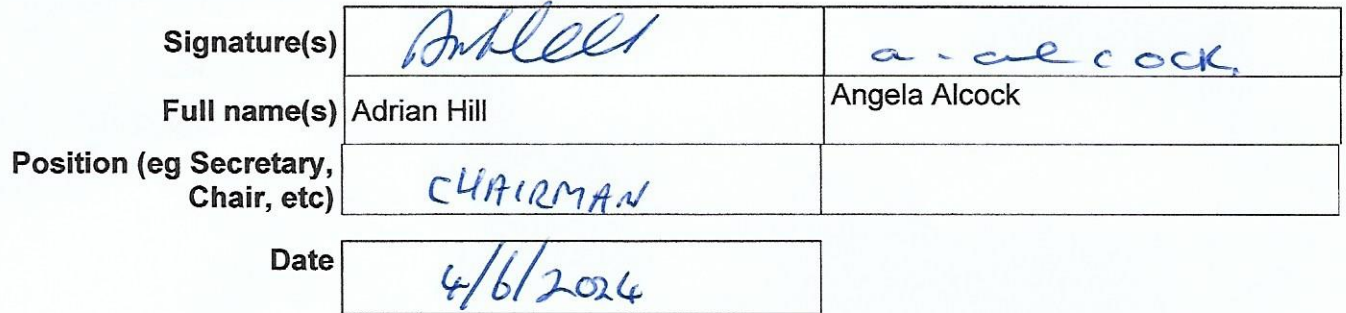 Signature(s) a. alcock.
Full name(s) Adrian Hill Angela Alcock
Position (eg Secretary,
Chair, etc) CHAIRMAN
Date 4/6/2024